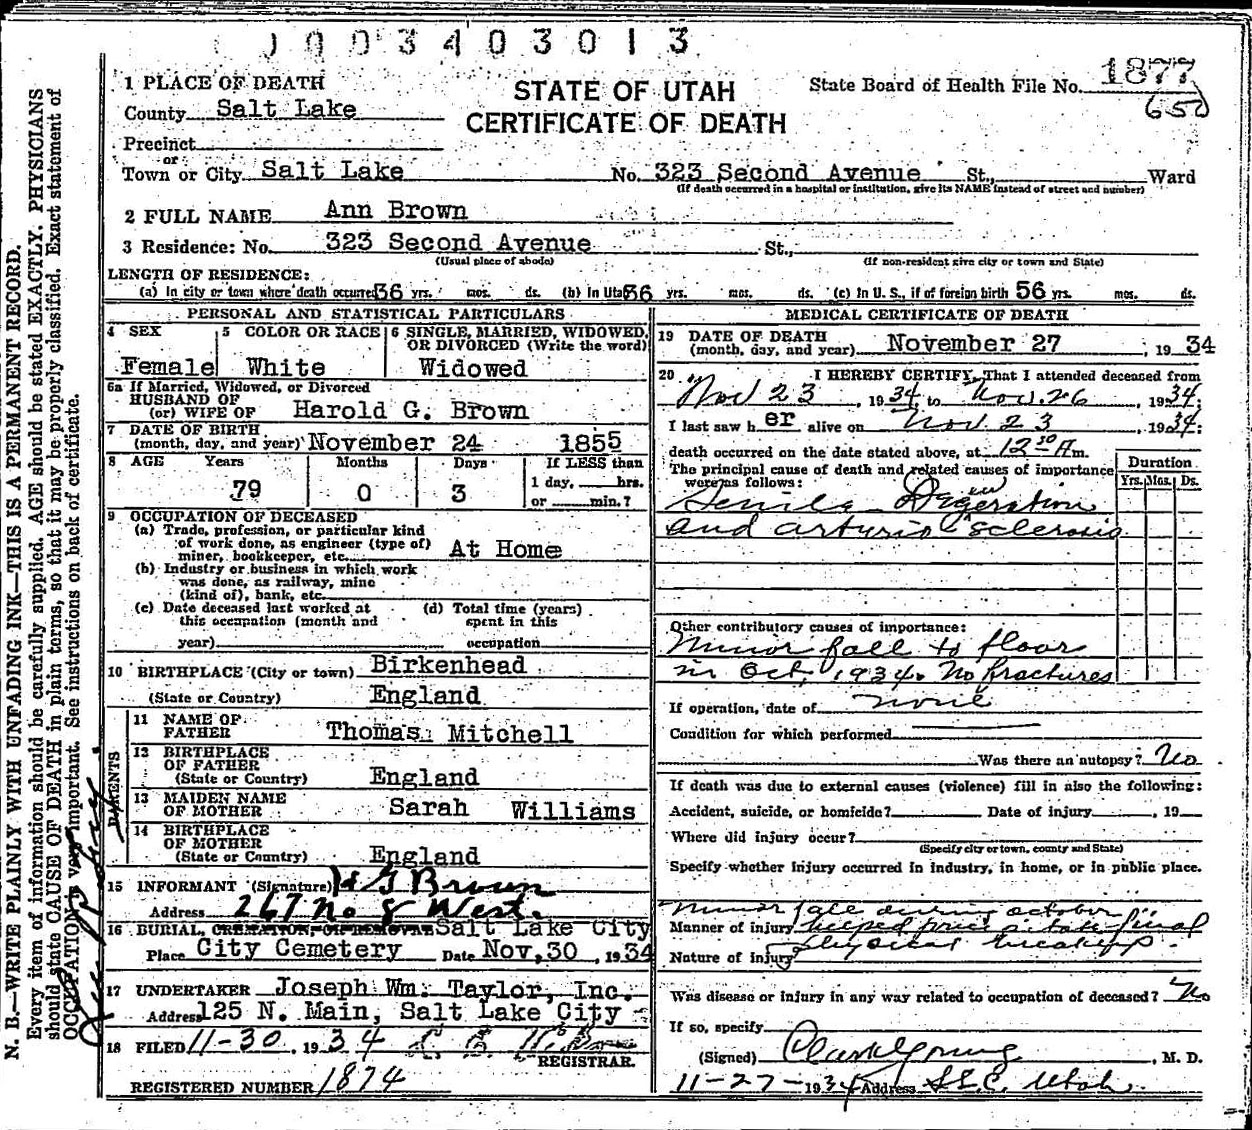 J003403013
STATE OF UTAH
CERTIFICATE OF DEATH
State Board of Health File No. 1877
650
1 PLACE OF DEATH
County Salt Lake
Precinct
or
Town or City Salt Lake No. 323 Second Avenue St., Ward
(If death occurred in a hospital or institution, give its NAME instead of street and number)
2 FULL NAME Ann Brown
3 Residence: No. 323 Second Avenue St.,
(Usual place of abode) (If non-resident give city or town and State)
LENGTH OF RESIDENCE:
(a) In city or town where death occurred 56 yrs. mos. ds. (b) In Utah 56 yrs. mos. ds. (c) In U. S., if of foreign birth 56 yrs. mos. ds.
PERSONAL AND STATISTICAL PARTICULARS
4 SEX
Female
5 COLOR OR RACE
White
6 SINGLE, MARRIED, WIDOWED,
OR DIVORCED (Write the word)
Widowed
6a If Married, Widowed, or Divorced
HUSBAND OF
(or) WIFE OF Harold G. Brown
7 DATE OF BIRTH
(month, day, and year) November 24 1855
8 AGE Years Months Days If LESS than
1 day, hrs.
79 0 3 or min.?
9 OCCUPATION OF DECEASED
(a) Trade, profession, or particular kind
of work done, as engineer (type of)
miner, bookkeeper, etc. At Home
(b) Industry or business in which work
was done, as railway, mine
(kind of), bank, etc.
(c) Date deceased last worked at
this occupation (month and
year)
(d) Total time (years)
spent in this
occupation
10 BIRTHPLACE (City or town) Birkenhead
(State or Country) England
PARENTS
11 NAME OF
FATHER Thomas Mitchell
12 BIRTHPLACE
OF FATHER
(State or Country) England
13 MAIDEN NAME
OF MOTHER Sarah Williams
14 BIRTHPLACE
OF MOTHER
(State or Country) England
15 INFORMANT (Signature) H G Brown
Address 267 No 8 West.
16 BURIAL, CREMATION, OR REMOVAL Salt Lake City
Place City Cemetery Date Nov, 30, 1934
17 UNDERTAKER Joseph Wm. Taylor, Inc.
Address 125 N. Main, Salt Lake City
18 FILED 11-30, 1934
REGISTRAR.
REGISTERED NUMBER 1874
MEDICAL CERTIFICATE OF DEATH
19 DATE OF DEATH
(month, day, and year) November 27, 1934
20 I HEREBY CERTIFY, That I attended deceased from
Nov 23, 1934 to Nov. 26, 1934;
I last saw her alive on Nov. 23, 1934;
death occurred on the date stated above, at 12 30 A m.
The principal cause of death and related causes of importance
were as follows:
Duration
Yrs. Mos. Ds.
Senile Degeneration
and artyrio sclerosis
Other contributory causes of importance:
Minor fall to floor
in Oct, 1934. No fractures
If operation, date of none
Condition for which performed
Was there an autopsy? No
If death was due to external causes (violence) fill in also the following:
Accident, suicide, or homicide? Date of injury, 19
Where did injury occur?
(Specify city or town, county and State)
Specify whether injury occurred in industry, in home, or in public place.
Minor fall during october
Manner of injury helped final
Nature of injury physical breakup.
Was disease or injury in any way related to occupation of deceased? No
If so, specify
(Signed) Clark Young, M. D.
11-27-1934 Address S.L.C. Utah.
N. B.—WRITE PLAINLY WITH UNFADING INK—THIS IS A PERMANENT RECORD.
Every item of information should be carefully supplied. AGE should be stated EXACTLY. PHYSICIANS
should state CAUSE OF DEATH in plain terms, so that it may be properly classified. Exact statement of
OCCUPATION is very important. See instructions on back of certificate.